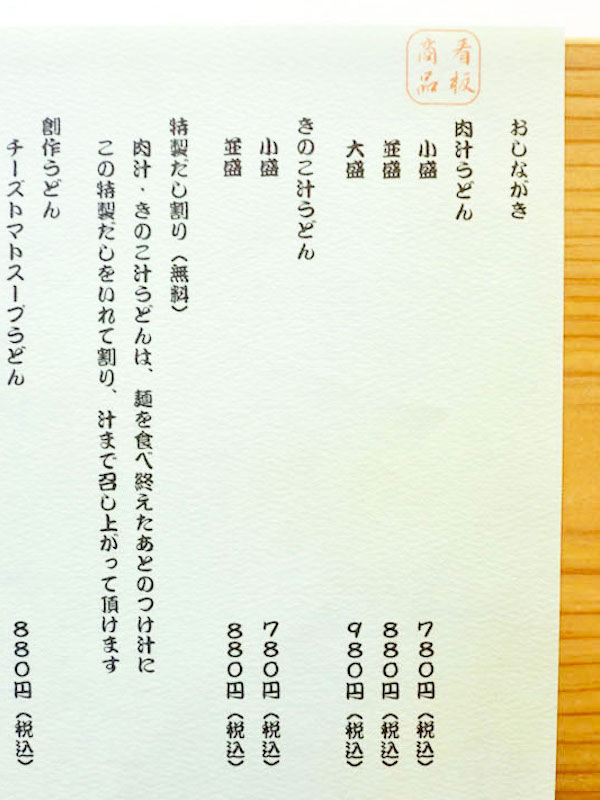 おしながき
看板商品
肉汁うどん
小盛 780円(税込)
並盛 880円(税込)
大盛 980円(税込)
きのこ汁うどん
小盛 780円(税込)
並盛 880円(税込)
特製だし割り(無料)
肉汁・きのこ汁うどんは、麺を食べ終えたあとのつけ汁に
この特製だしをいれて割り、汁まで召し上がって頂けます
創作うどん
チーズトマトスープうどん 880円(税込)